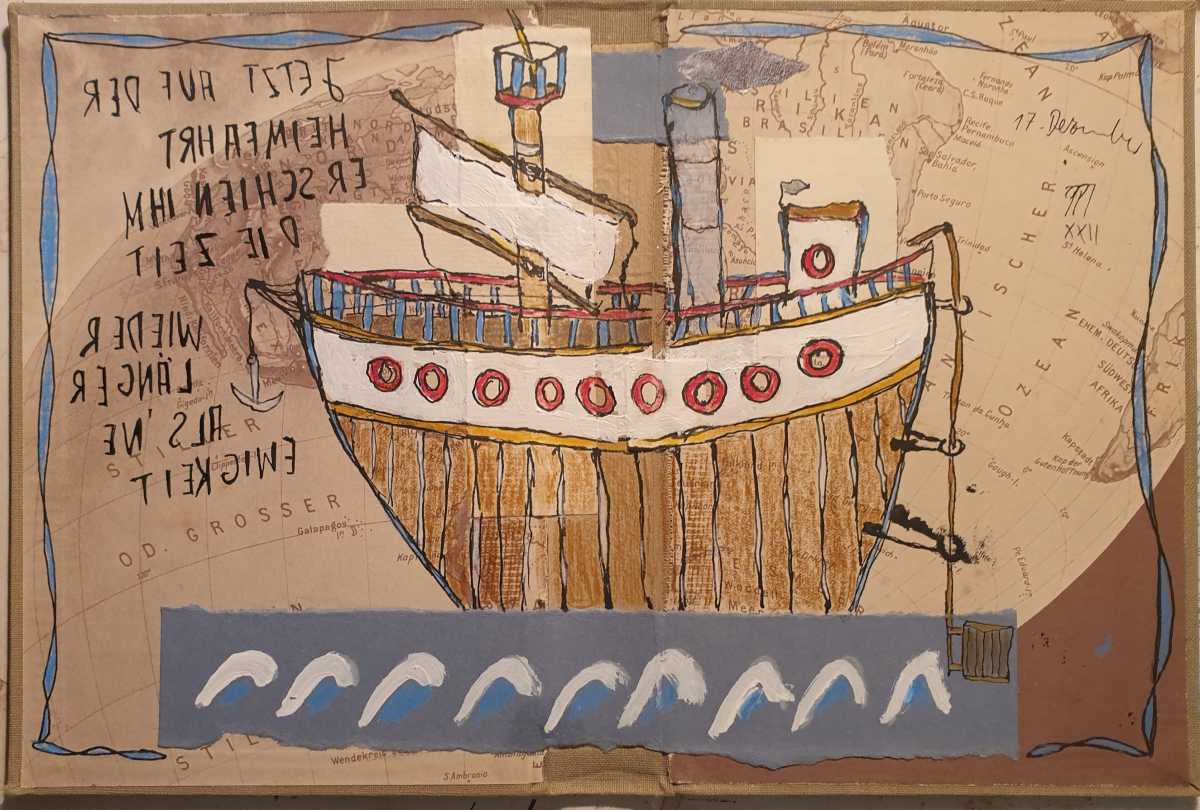 JETZT AUF DER
HEIMFAHRT
ERSCHIEN IHM
DIE ZEIT
WIEDER
LÄNGER
ALS 'NE
EWIGKEIT
17. Dezember
XXII
Äquator
St. Paul
Belém
(Pará)
Maranhão
Fortaleza
(Ceará)
Fernando
Noronha
C.S. Roque
Kap Palmas
BRASILIEN
BRASILIAN
Recife
Pernambuco
Maceió
Ascension
São Salvador
Bahia
Porto Seguro
Trinidad
St. Helena
OZEAN
EHEM. DEUTSCH
SÜDWEST
AFRIKA
Tristan da Cunha
Kapstadt
Kap der
Guten Hoffnung
Gough-I.
STILLER
OD. GROSSER
Galapagos
STIL
Wendekreis
S. Ambrosio